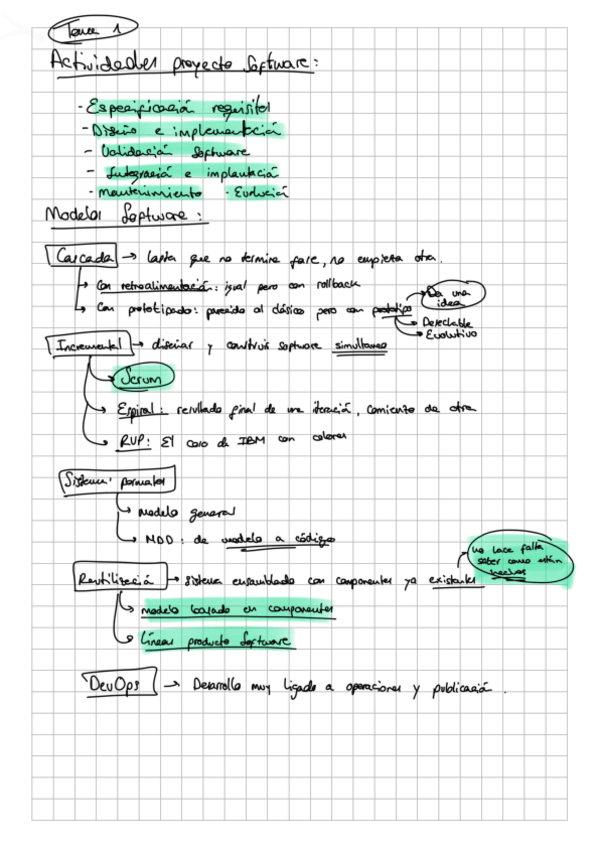 Tema 1
Actividades proyecto Software:
- Especificación requisitos
- Diseño e implementación
- Validación Software
- Integración e implantación
- mantenimiento - Evolución
Modelos Software:
Cascada → hasta que no termine fase, no empieza otra.
→ Con retroalimentación: igual pero con rollback
→ Con prototipado: parecido al clásico pero con prototipo → Da una idea
→ Desechable
→ Evolutivo
Incremental → diseñar y construir software simultaneo
→ Scrum
→ Espiral: resultado final de una iteración, comienzo de otra
→ RUP: El caso de IBM con colores
Sistemas formales
→ modelo general
→ MDD: de modelo a código
Reutilización → sistema ensamblado con componentes ya existentes → no hace falta saber como están hechos
→ modelo basado en componentes
→ Líneas producto Software
DevOps → Desarrollo muy ligado a operaciones y publicación.